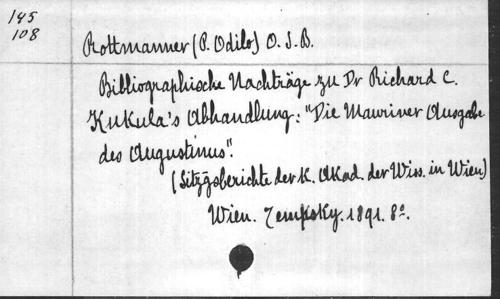 145
108
Rottmanner (P. Odilo) O. S. B.
Bibliographische Nachträge zu Dr Richard C.
Kukula's Abhandlung: "Die Mauriner Ausgabe
des Augustinus".
(Sitzgsberichte der K. Akad. der Wiss. in Wien)
Wien. Tempsky. 1891. 8º.